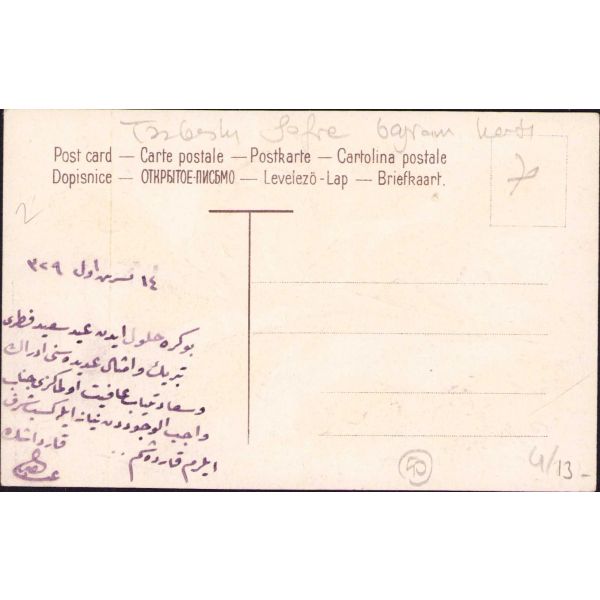 bayram
Post card — Carte postale — Postkarte — Cartolina postale
Dopisnice — ОТКРЫТОЕ-ПИСЬМО — Levelező-Lap — Briefkaart.
١٤ تشرین اول ٣٢٩
بو كره حلول ایدن عید سعید فطری
تبریك و امثال عدیده سنی ادراك
و سعادتیاب عافیت اولماكزی جناب
واجب الوجوددن نیاز ایلر كسب شرف
ایلرم قارداشم ..
قارداشك
50
4/13-